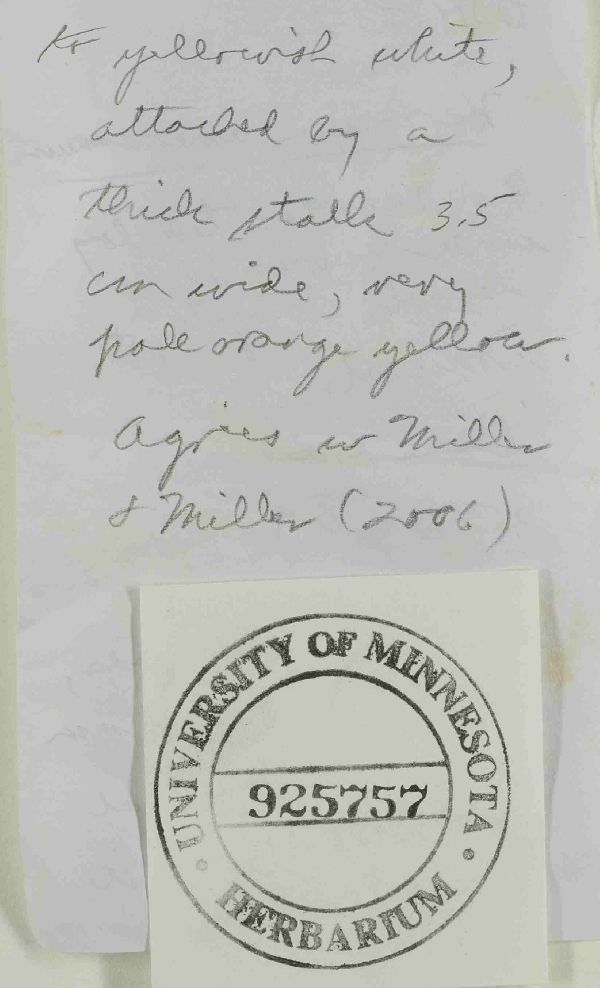 to yellowish white,
attached by a
thick stalk 3.5
cm wide, very
pale orange yellow.
Agrees w Miller
& Miller (2006)
UNIVERSITY OF MINNESOTA
925757
HERBARIUM